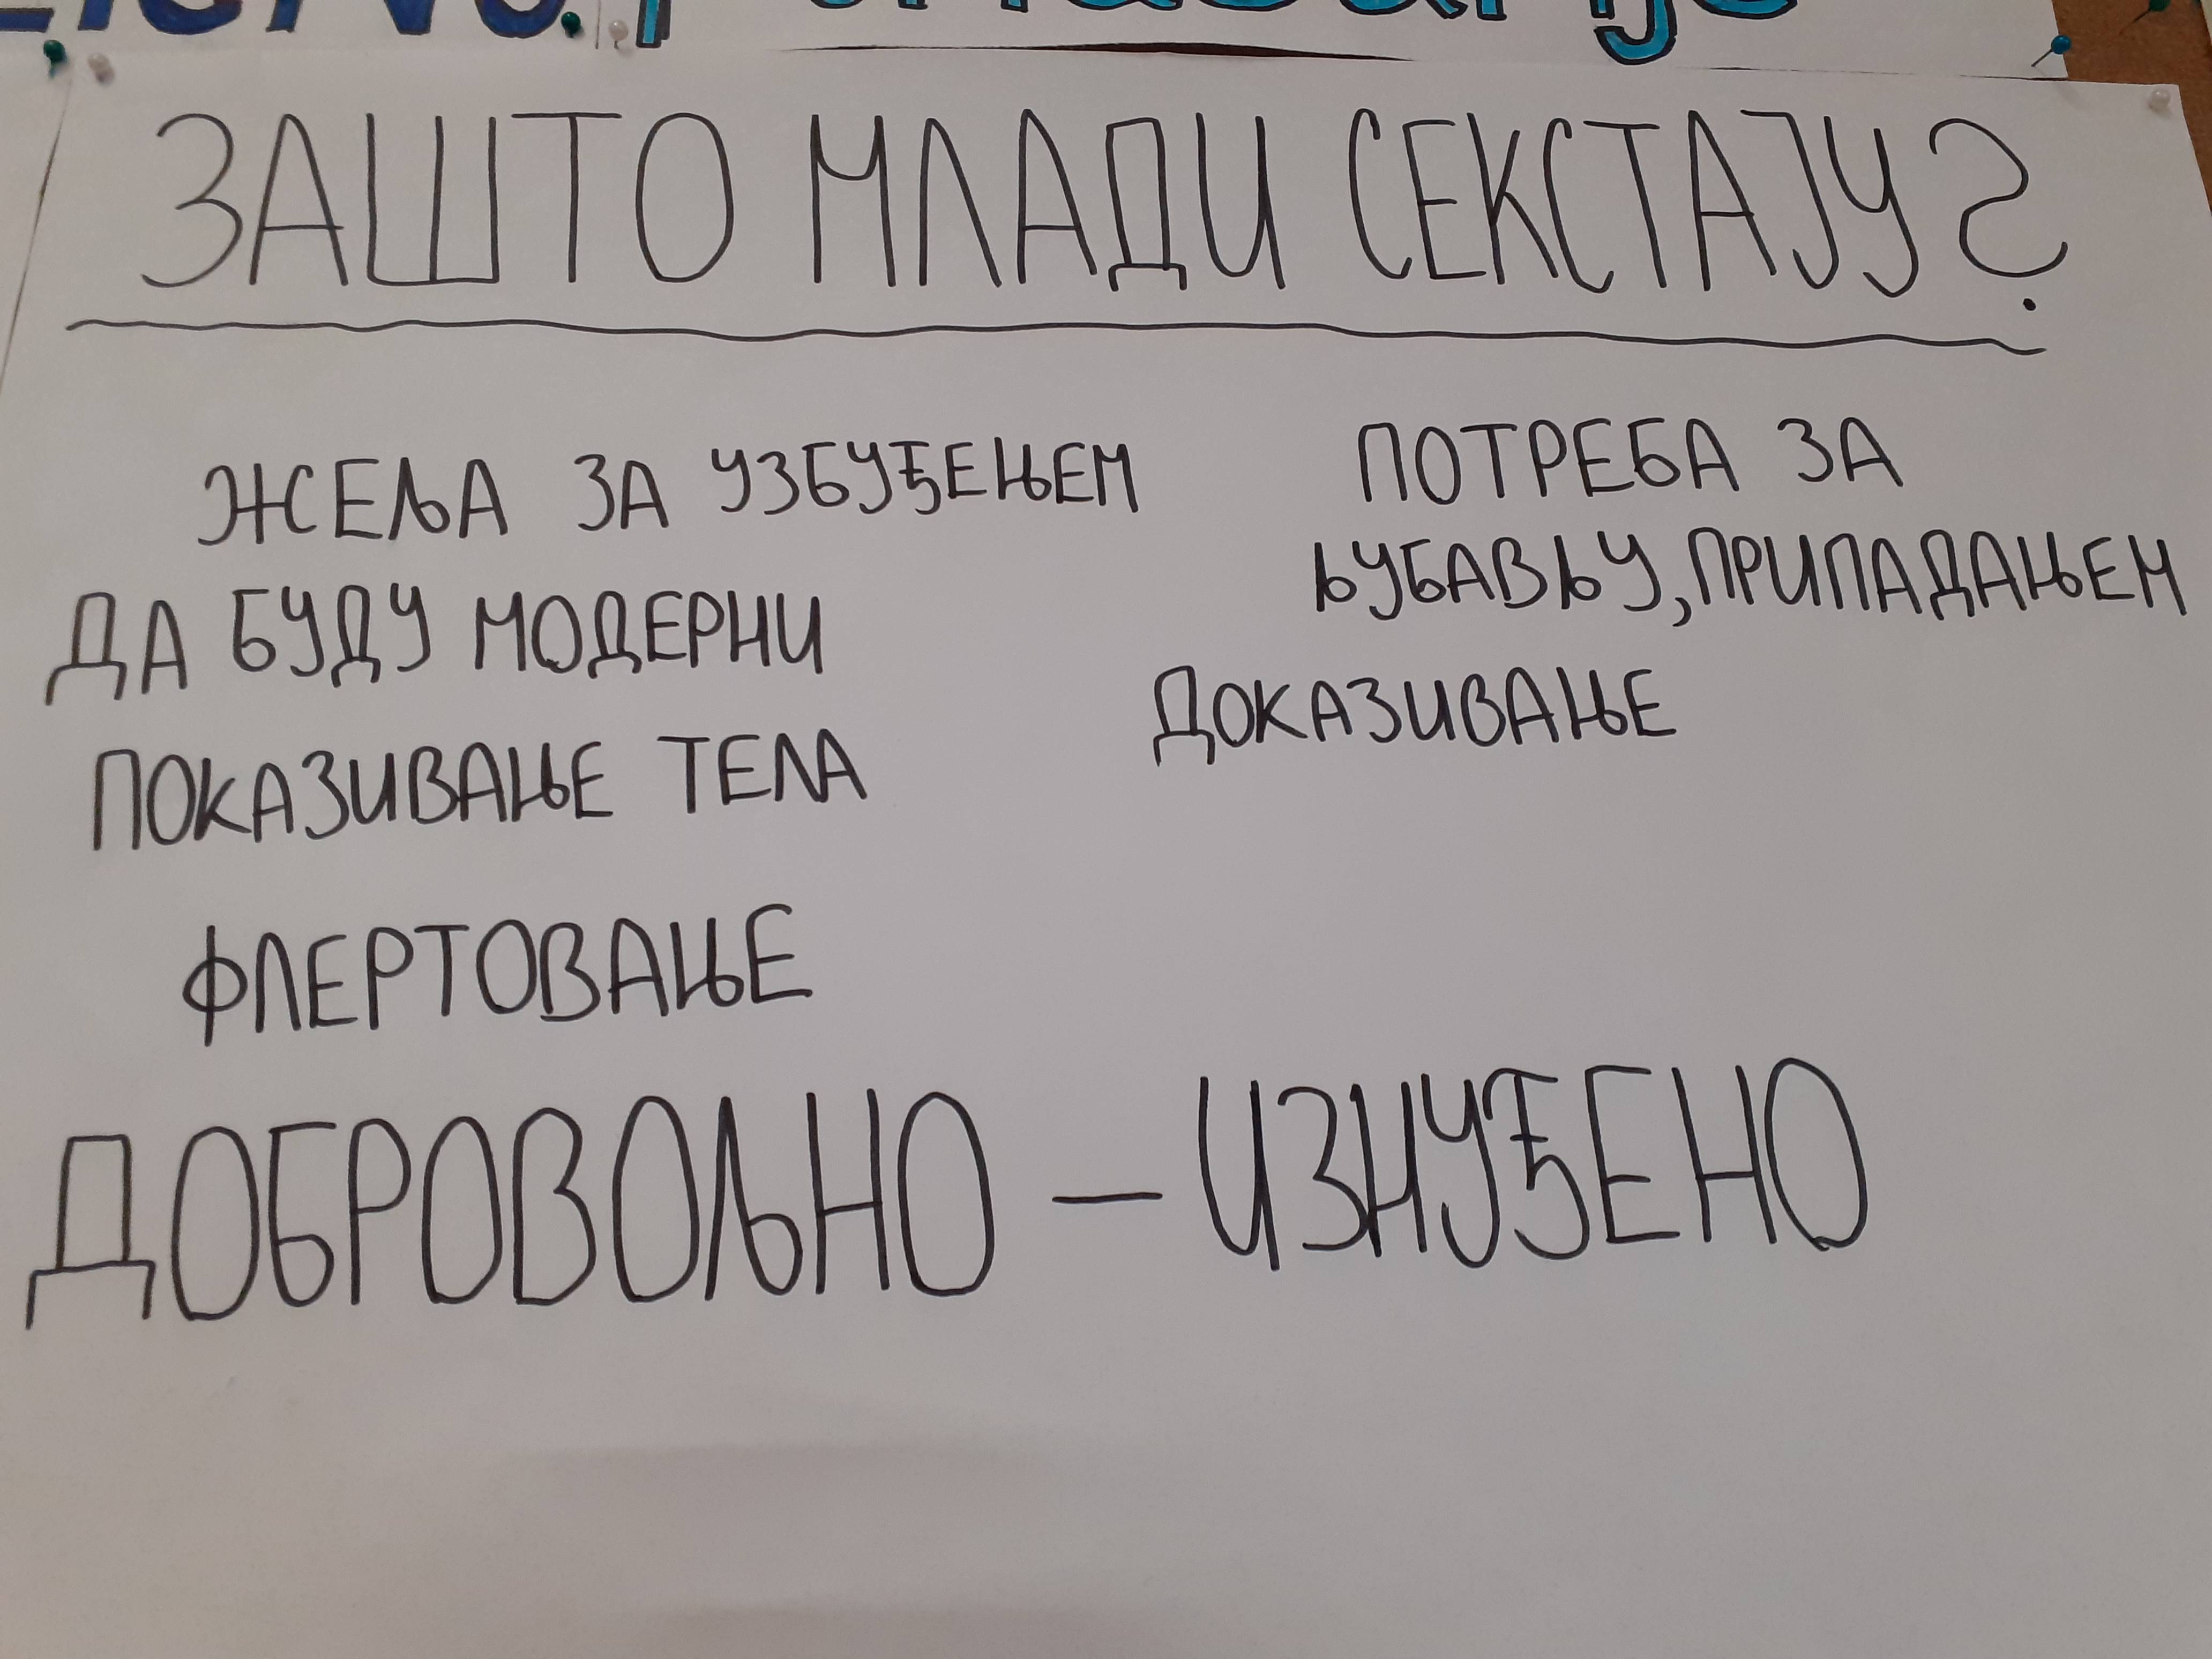 ЗАШТО МЛАДИ СЕКСТАЈУ?
ЖЕЉА ЗА УЗБУЂЕЊЕМ
ДА БУДУ МОДЕРНИ
ПОКАЗИВАЊЕ ТЕЛА
ФЛЕРТОВАЊЕ
ПОТРЕБА ЗА
ЉУБАВЉУ, ПРИПАДАЊЕМ
ДОКАЗИВАЊЕ
ДОБРОВОЉНО - ИЗНУЂЕНО